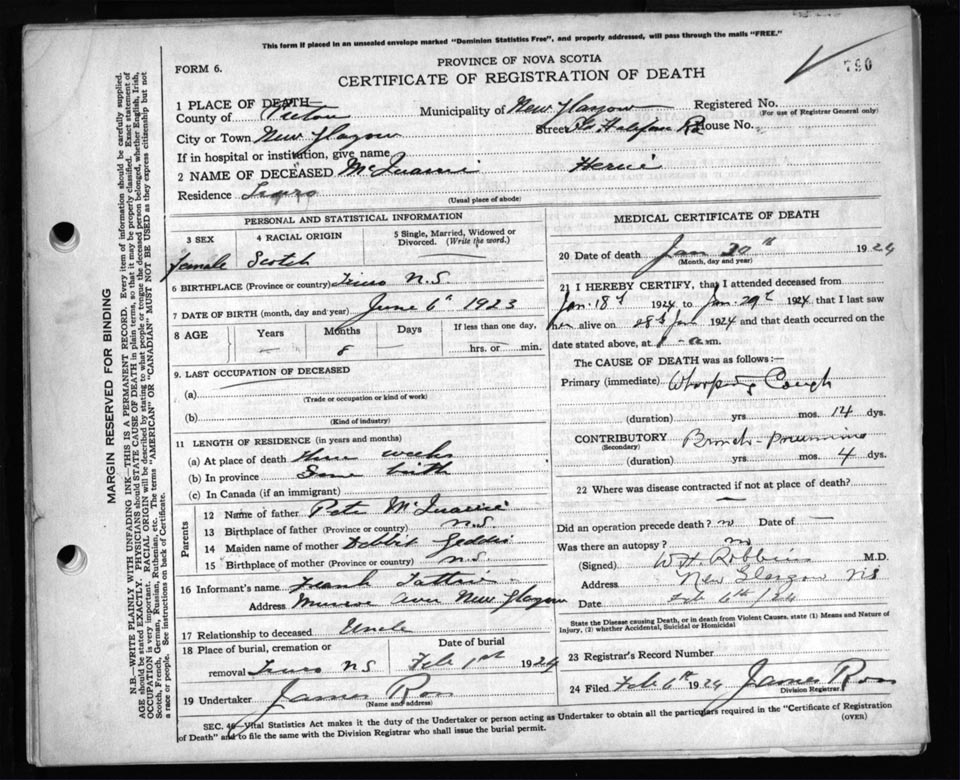 This form if placed in an unsealed envelope marked "Dominion Statistics Free", and properly addressed, will pass through the mails "FREE."
FORM 6.
PROVINCE OF NOVA SCOTIA
CERTIFICATE OF REGISTRATION OF DEATH
790
1 PLACE OF DEATH
County of Pictou Municipality of New Glasgow Registered No.
(For use of Registrar General only)
City or Town New Glasgow Street House No.
If in hospital or institution, give name
2 NAME OF DECEASED
Residence Truro
(Usual place of abode)
PERSONAL AND STATISTICAL INFORMATION
3 SEX 4 RACIAL ORIGIN 5 Single, Married, Widowed or Divorced. (Write the word.)
female Scotch
6 BIRTHPLACE (Province or country) Truro N.S.
7 DATE OF BIRTH (month, day and year) June 6th 1923
8 AGE Years Months Days If less than one day,
— 8 hrs. or min.
9. LAST OCCUPATION OF DECEASED
(a)
(Trade or occupation or kind of work)
(b)
(Kind of industry)
11 LENGTH OF RESIDENCE (in years and months)
(a) At place of death three weeks
(b) In province Since birth
(c) In Canada (if an immigrant)
Parents
12 Name of father Peter
13 Birthplace of father (Province or country) N.S.
14 Maiden name of mother
15 Birthplace of mother (Province or country) N.S.
16 Informant's name Frank
Address Munroe Ave New Glasgow
17 Relationship to deceased Uncle
18 Place of burial, cremation or removal Truro NS Date of burial Feb 1st 1924
19 Undertaker James Ross
(Name and address)
MEDICAL CERTIFICATE OF DEATH
20 Date of death Jan 1924
(Month, day and year)
21 I HEREBY CERTIFY, that I attended deceased from
Jan. 18th 1924 to Jan. 29th 1924 that I last saw
her alive on 28th Jan 1924 and that death occurred on the
date stated above, at m.
The CAUSE OF DEATH was as follows:—
Primary (immediate) Whooping Cough
(duration) yrs mos. 14 dys.
CONTRIBUTORY Broncho-pneumonia
(Secondary)
(duration) yrs mos. 4 dys.
22 Where was disease contracted if not at place of death?
—
Did an operation precede death? no Date of —
Was there an autopsy? no
(Signed) W. H. Robbins M.D.
Address New Glasgow NS
Date Feb 6th /24
State the Disease causing Death, or in death from Violent Causes, state (1) Means and Nature of Injury, (2) whether Accidental, Suicidal or Homicidal
23 Registrar's Record Number
24 Filed Feb 6th 1924 James Ross
Division Registrar
SEC. 40—Vital Statistics Act makes it the duty of the Undertaker or person acting as Undertaker to obtain all the particulars required in the "Certificate of Registration of Death" and to file the same with the Division Registrar who shall issue the burial permit.
(OVER)
MARGIN RESERVED FOR BINDING
N.B.—WRITE PLAINLY WITH UNFADING INK—THIS IS A PERMANENT RECORD. Every item of information should be carefully supplied.
AGE should be stated EXACTLY. PHYSICIANS should STATE CAUSE OF DEATH in plain terms, so that it may be properly classified. Exact statement of
OCCUPATION is very important. RACIAL ORIGIN will be described by stating to what people or tongue the deceased person belonged, whether English, Irish,
Scotch, French, German, Russian, Ruthenian, etc. The terms "AMERICAN" OR "CANADIAN" MUST NOT BE USED as they express citizenship but not
a race or people. See instructions on back of Certificate.